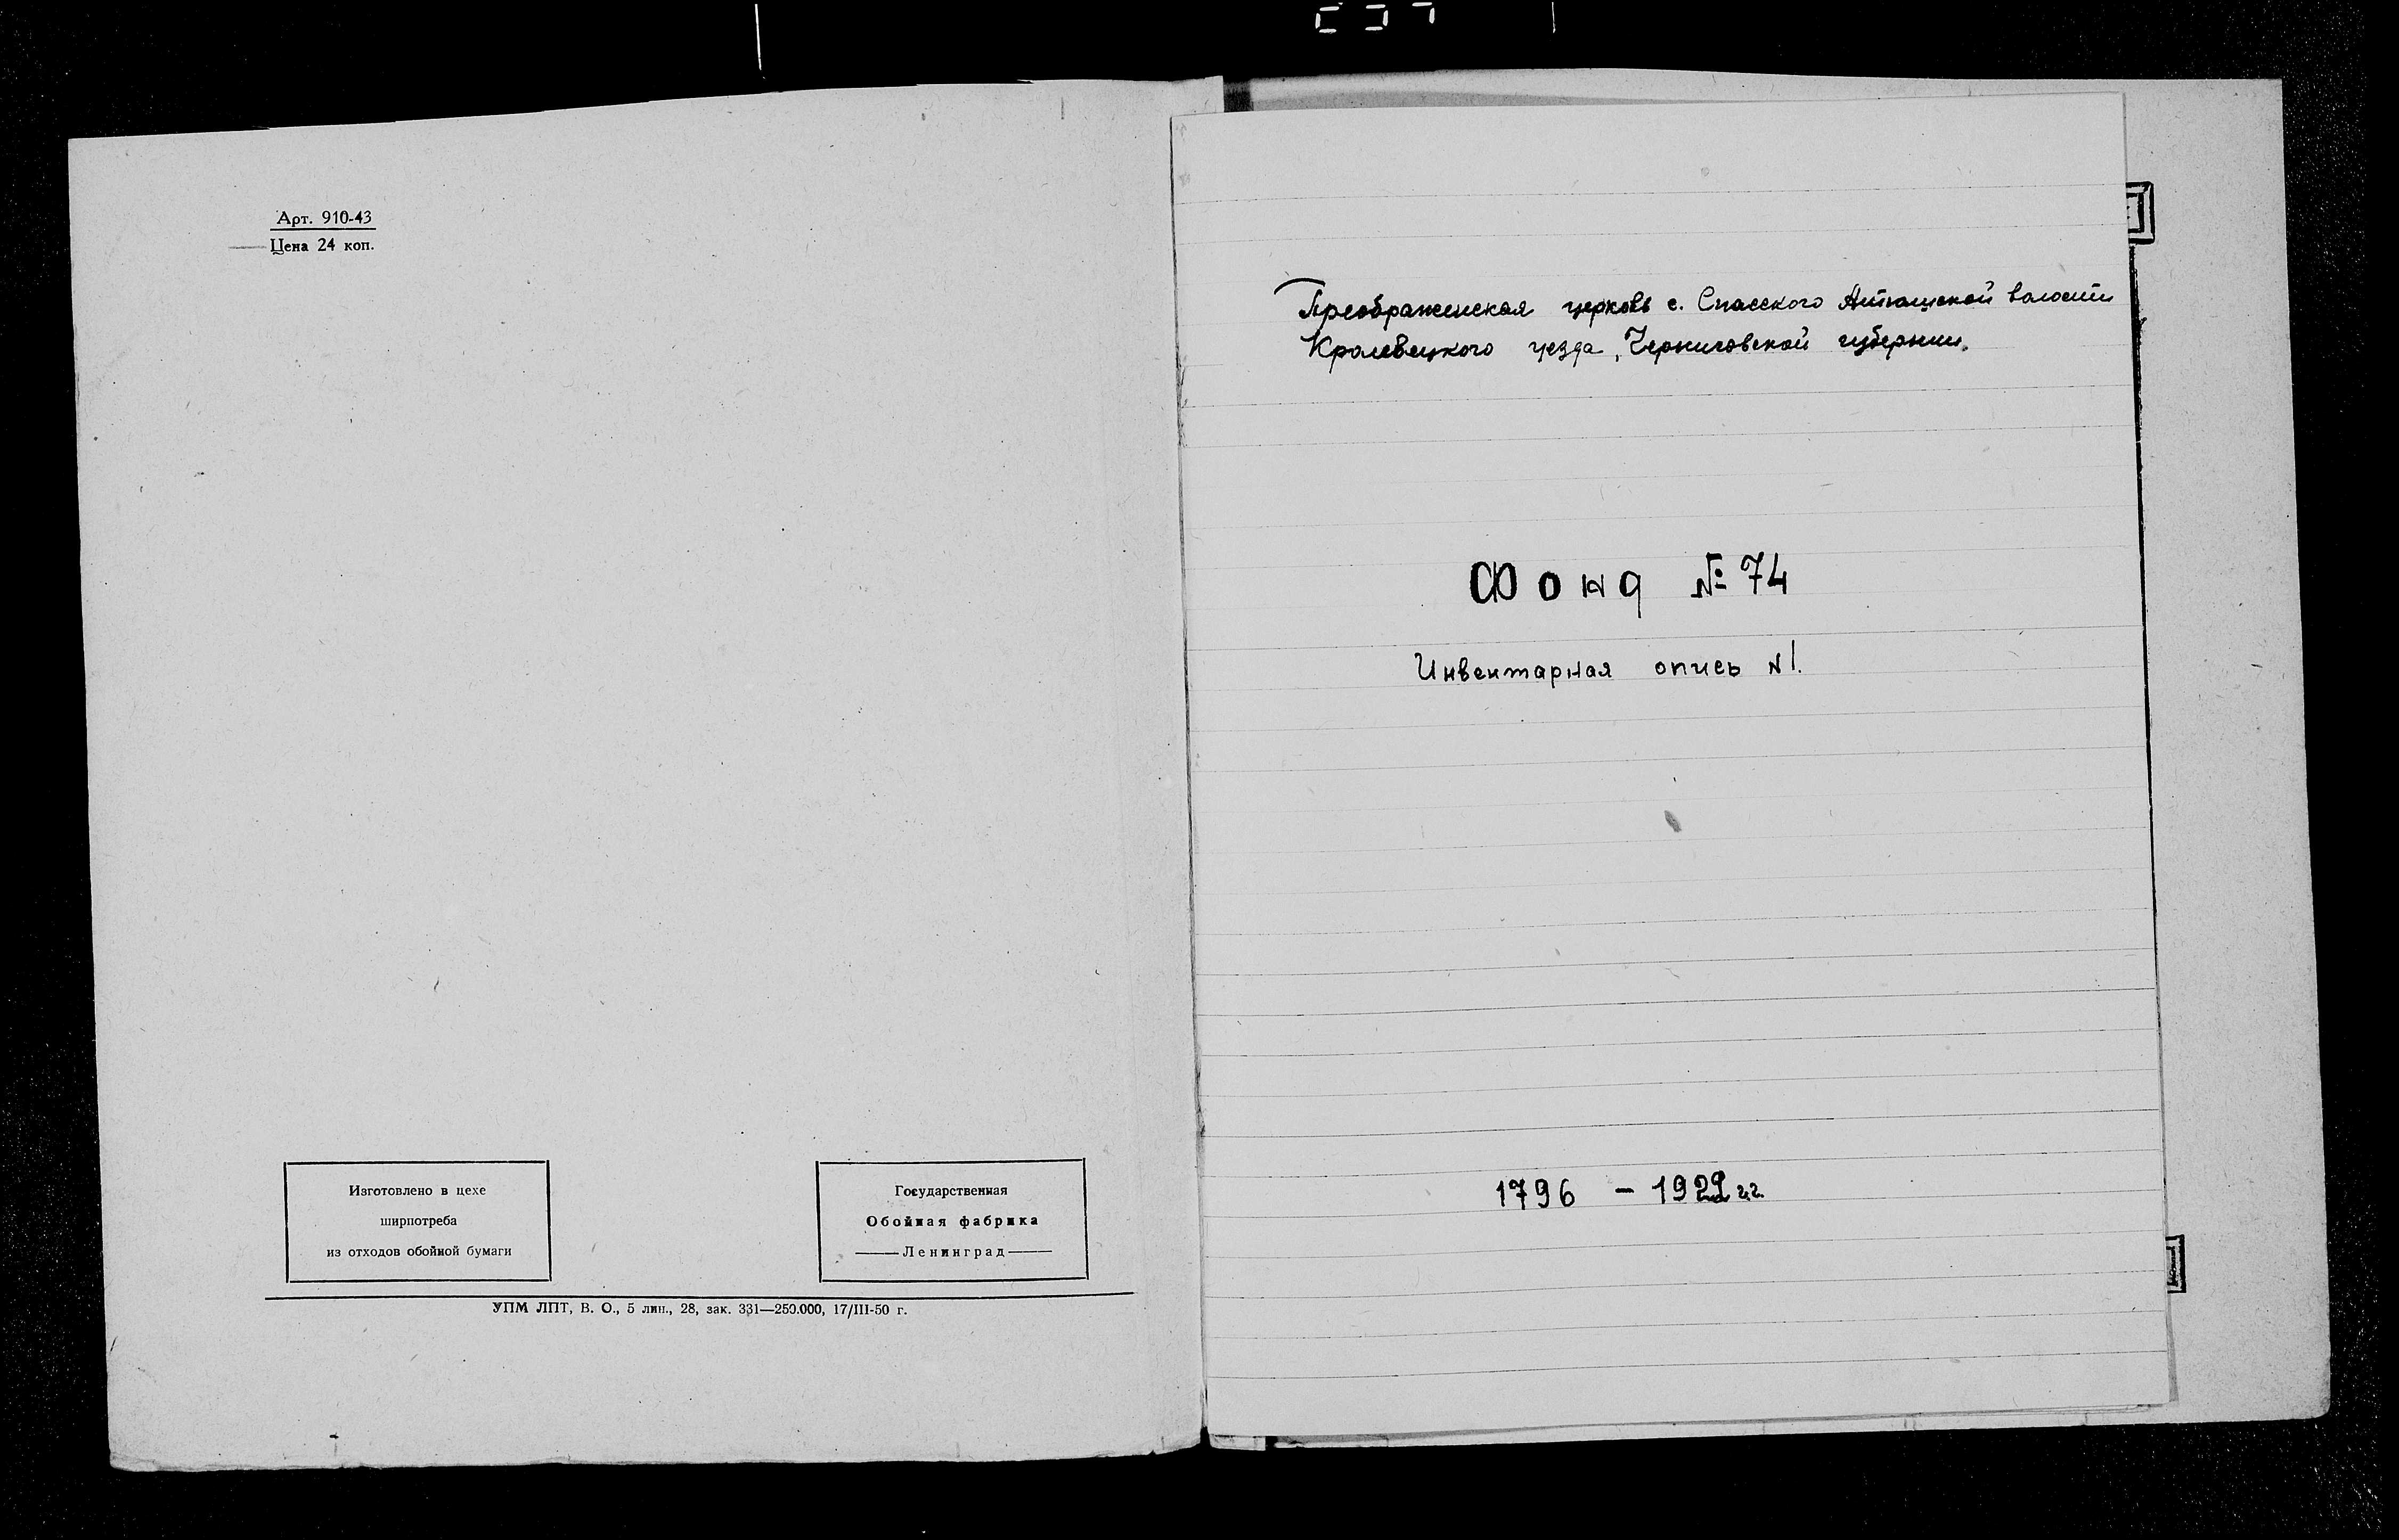 Арт. 910-43
Цена 24 коп.
Изготовлено в цехе
ширпотреба
из отходов обойной бумаги
Государственная
Обойная фабрика
Ленинград
УПМ ЛПТ, В. О., 5 лин., 28, зак. 331—250.000, 17/III-50 г.
Преображенская церковь с. Спасского волости
Кролевецкого уезда, Черниговской губернии.
Фонд № 74
Инвентарная опись N 1.
1796 – 1922 г.г.